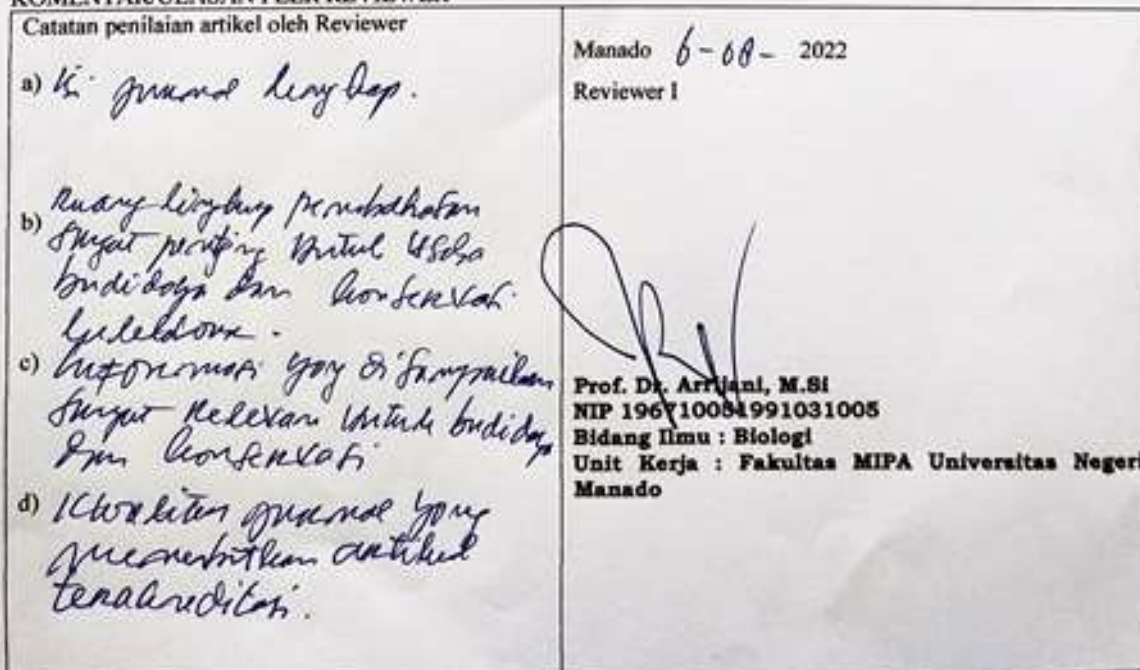 KOMENTAR/ULASAN PEER REVIEWER
Catatan penilaian artikel oleh Reviewer
a) Isi jurnal lengkap.
b) Ruang lingkup pembahasan
sangat penting untuk usaha
budidaya dan konservasi
c) Informasi yang disampaikan
sangat relevan untuk budidaya
dan konservasi
d) Kwalitas jurnal yang
menerbitkan artikel
terakreditasi.
Manado 6-08- 2022
Reviewer I
Prof. Dr. Arrijani, M.Si
NIP 196710051991031005
Bidang Ilmu : Biologi
Unit Kerja : Fakultas MIPA Universitas Negeri
Manado